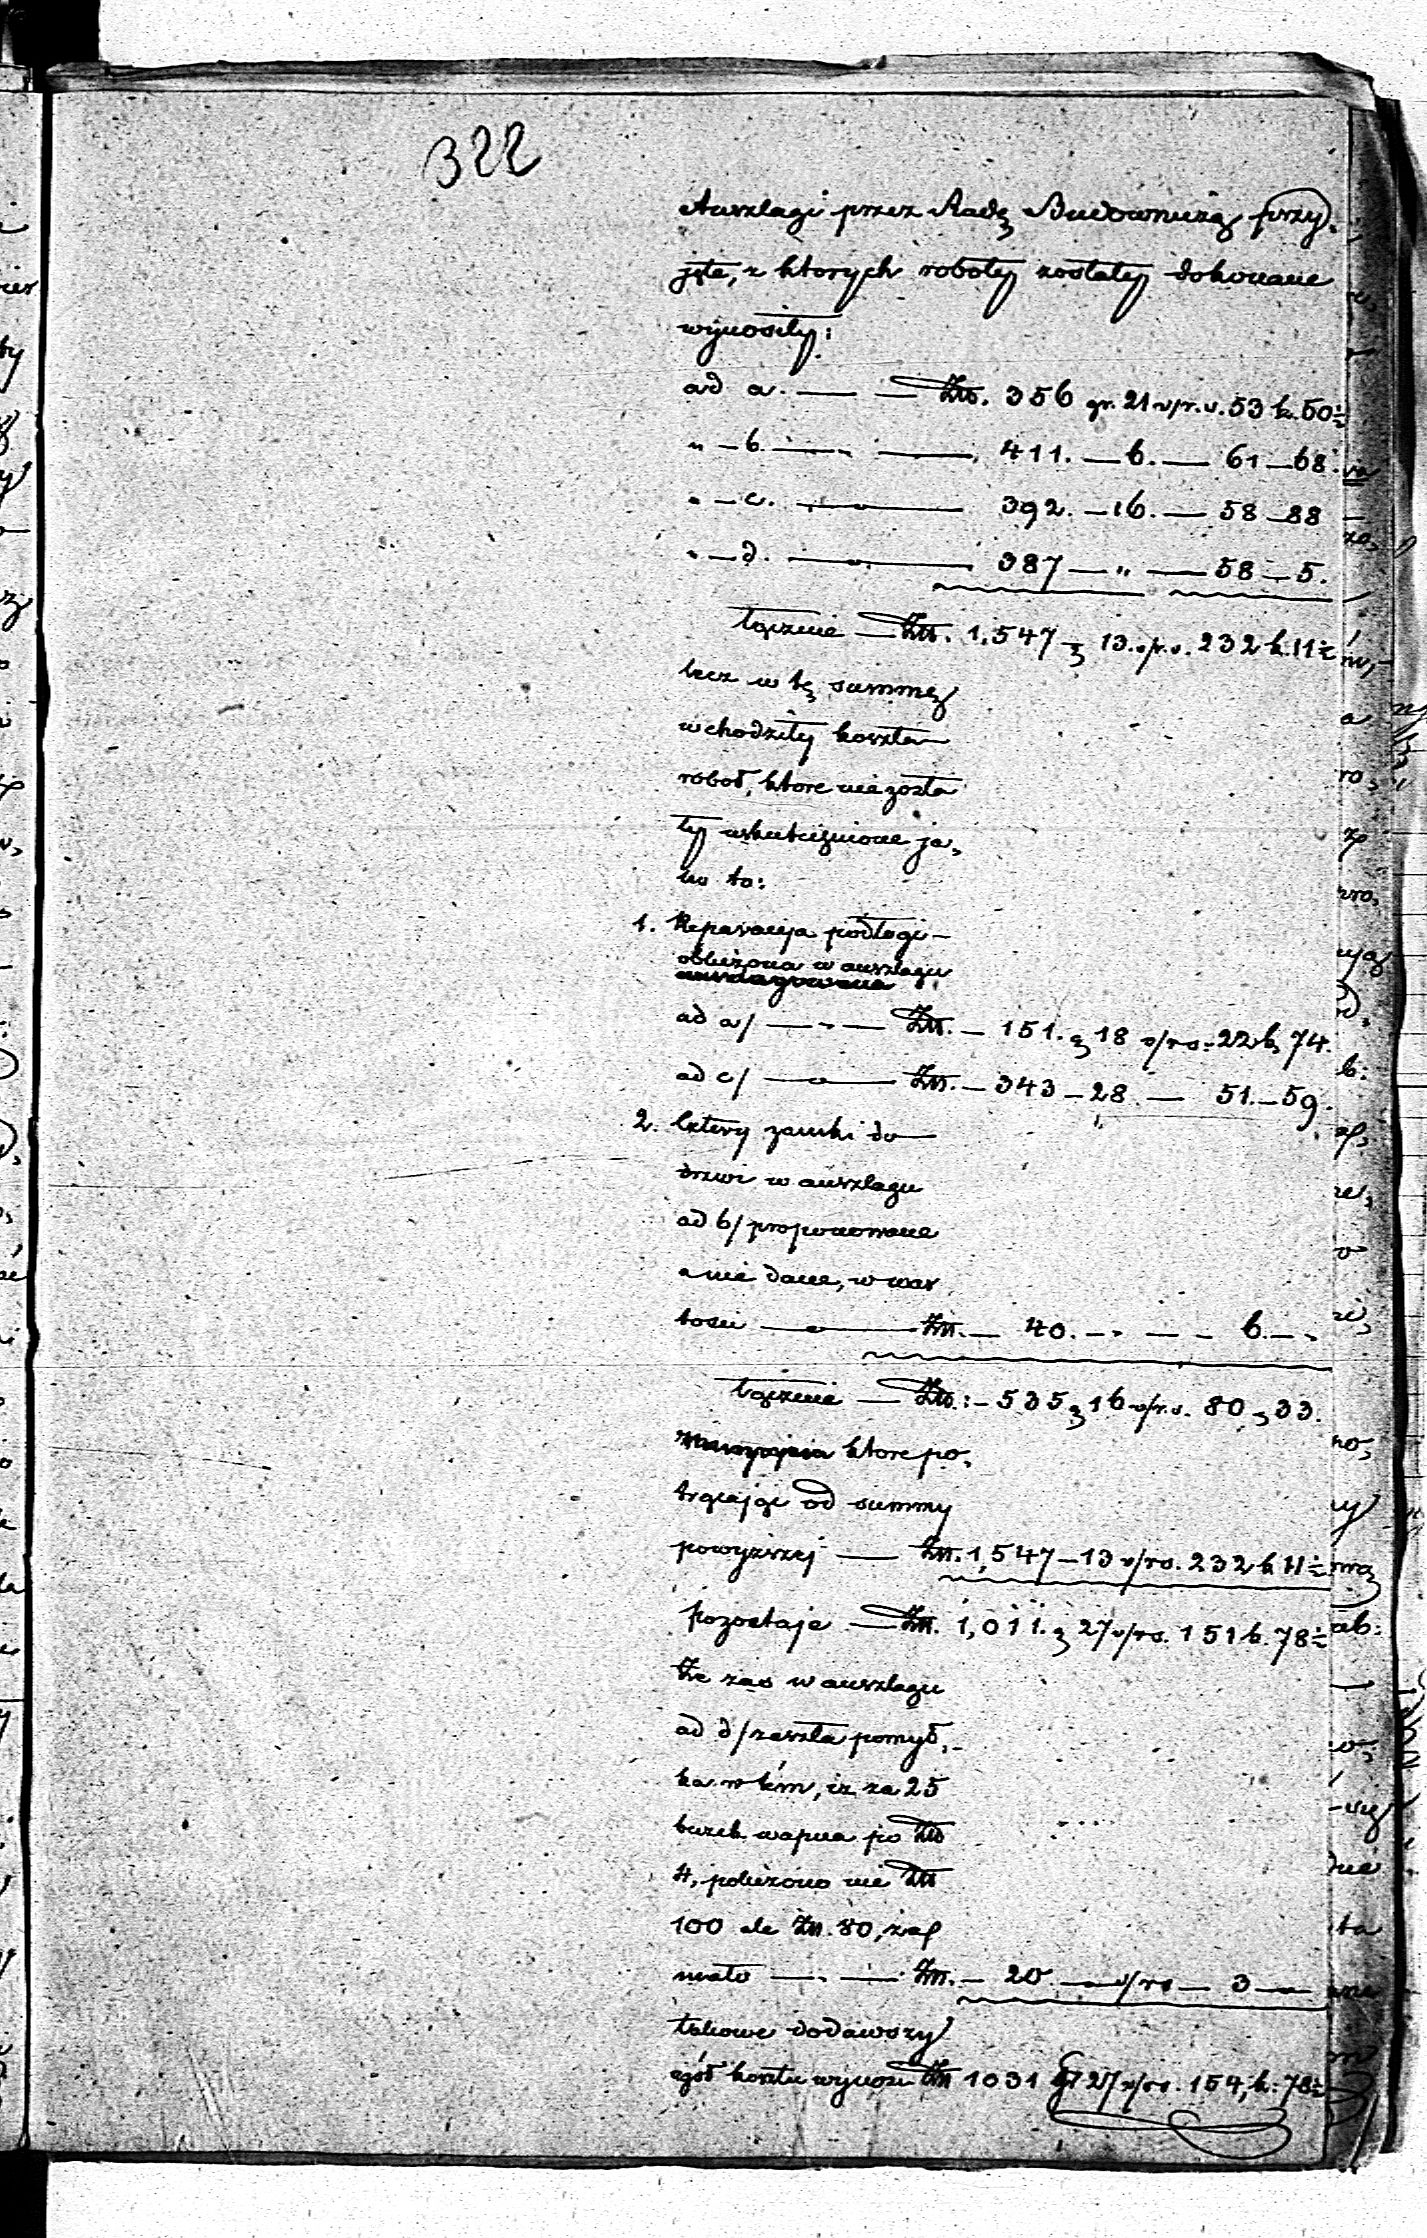 322
Anszlagi przez Radę Budowniczą przy,
jęte, z ktorych roboty zostały dokonane
wynosiły:
ad a. — — Złl. 356 gr. 21 v/r.s. 53 k. 50½
" — b. — — 411. — 6. — 61 — 68½
" — c. — — 392. — 16. — 58 — 88
" — d. — — 387 — " — 58 — 5.
łącznie — Złl. 1,547 g 13. v/r.s. 232 k. 11½
lecz w tę summę
wchodziły koszta
robot, ktore nie zosta
ły uskutecznione ja,
ko to:
1. Reparacya podłogi —
obliczona w anszlagu
ad a/ — - — Złl. — 151. g 18 v/rs. 22 k 74.
ad c/ — — Złl. — 343 — 28. — 51. — 59.
2. Cztery zamki do
drzwi w anszlagu
ad b/ proponowane
a nie dane, w war
tości — — Złl. — 40. — - — - 6. — -
łącznie — Złl. : — 535 g 16 v/r.s. 80 g 33.
ktore po,
trącając od summy
powyższej — Złl. 1,547 — 13 v/rs. 232 k 11½
pozostaje — Złl. 1,011. g 27 v/rs. 151 k. 78½
Że zas w anszlagu
ad d/ zaszła pomył,
ka w tém, iż za 25
beczek wapna po Złl
4, policzono nie Złl
100 ale Złl. 80, zaś
mało — . — Złl. — 20. — v/rs — 3 —
takowe dodawszy
ogół kosztu wynosi Złl 1031 gr 27 v/rs. 154, k. 78½